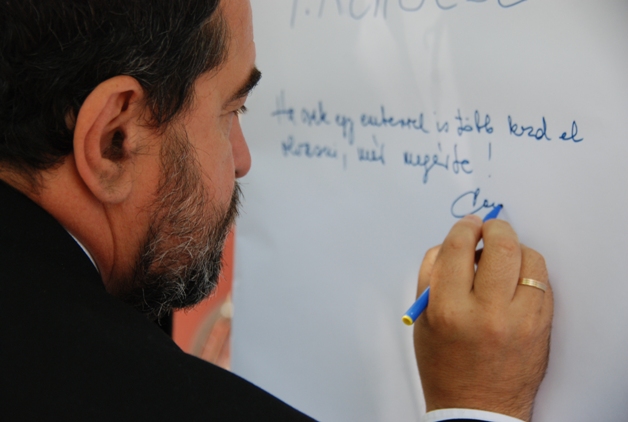 Ha csak egy emberrel is több kezd el
olvasni, már megérte!